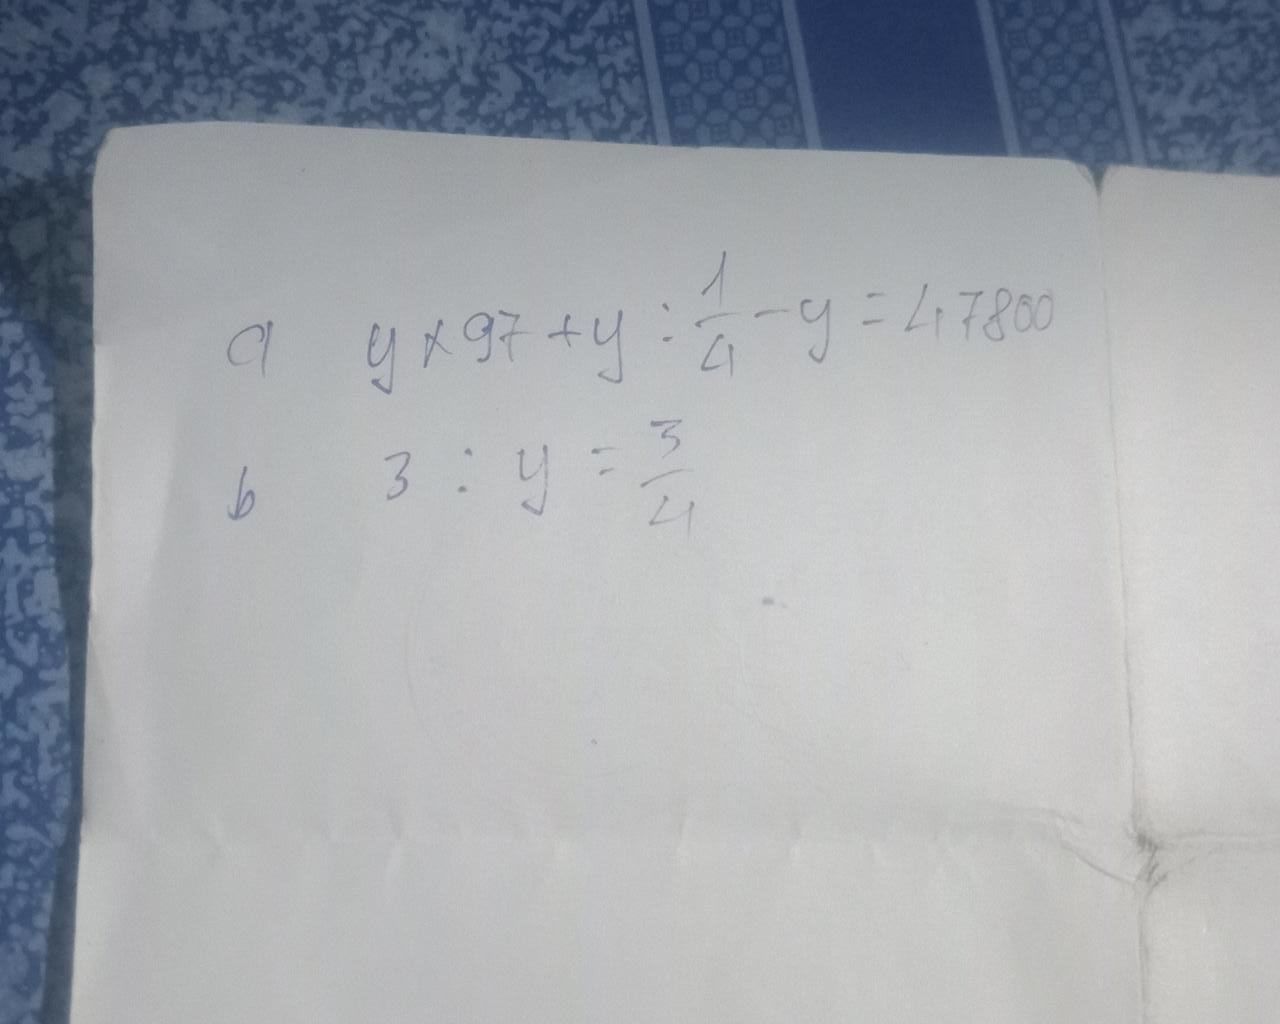 a y × 97 + y : 1/4 - y = 47800
b 3 : y = 3/4